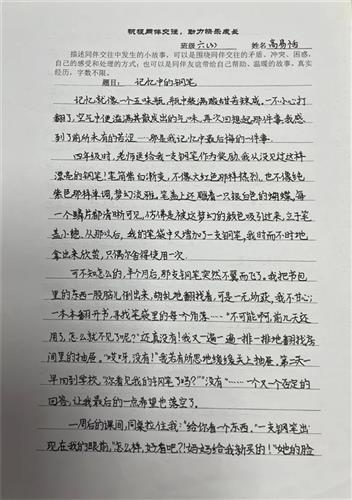 积极同伴交往，助力快乐成长
班级 六(3) 姓名 高易怡
描述同伴交往中发生的小故事，可以是围绕同伴交往的矛盾、冲突、困惑，
自己的感受和处理的方式；也可以是同伴友谊带给自己帮助、温暖的故事。真实
经历，字数不限。
题目： 记忆中的钢笔
记忆就像一个五味瓶，瓶中装满酸甜苦辣咸。一不小心打
翻了，空气中便溢满其散发出的气味。再次回想起那件事，我感
到了前所未有的苦涩……那是我记忆中最后悔的一件事。
四年级时，老师送给我一支钢笔作为奖励，我从没见过这样
漂亮的钢笔：笔筒紫白渐变，不像大红色那样热烈，也不像纯
紫色那样单调，梦幻淡雅。笔盖上还雕着一只银白色的蝴蝶，每
一个鳞片都清晰可见，仿佛是被这梦幻的颜色吸引过来，立于笔
盖小憩。从那以后，我的笔袋中又增加了一支钢笔，我时而不时地
拿出来欣赏，只偶尔舍得使用一次。
可不知怎么的，半个月后，那支钢笔突然不翼而飞了。我把书包
里的东西一股脑儿倒出来，胡乱地翻找着，可是一无所获。我不甘心；
一本本翻开书，寻找笔袋里的每个角落……“不可能啊，前几天还
用了，怎么就不见了呢？”还真没有！我又一遍一遍一排一排地翻找房
间里的抽屉。“哎呀，没有！”我若有所思地缓缓关上抽屉。第二天一
早回到学校，“你看见我的钢笔了吗？”“没有”……一个又一个否定的
回答，让我最后的一点希望也落空了。
一周后的课间，同桌拉住我：“给你看一个东西。”一支钢笔出
现在我的眼前，“怎么样，好看吧？！妈妈给我新买的！”她的脸